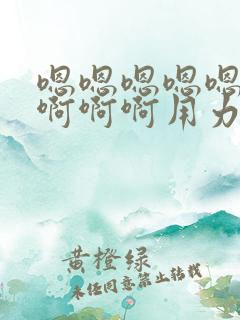 嗯嗯嗯嗯嗯
啊啊啊用力
黄橙绿
未经同意禁止转载